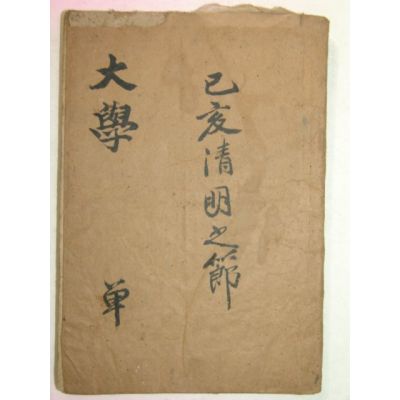 己亥清明之節
大學
單